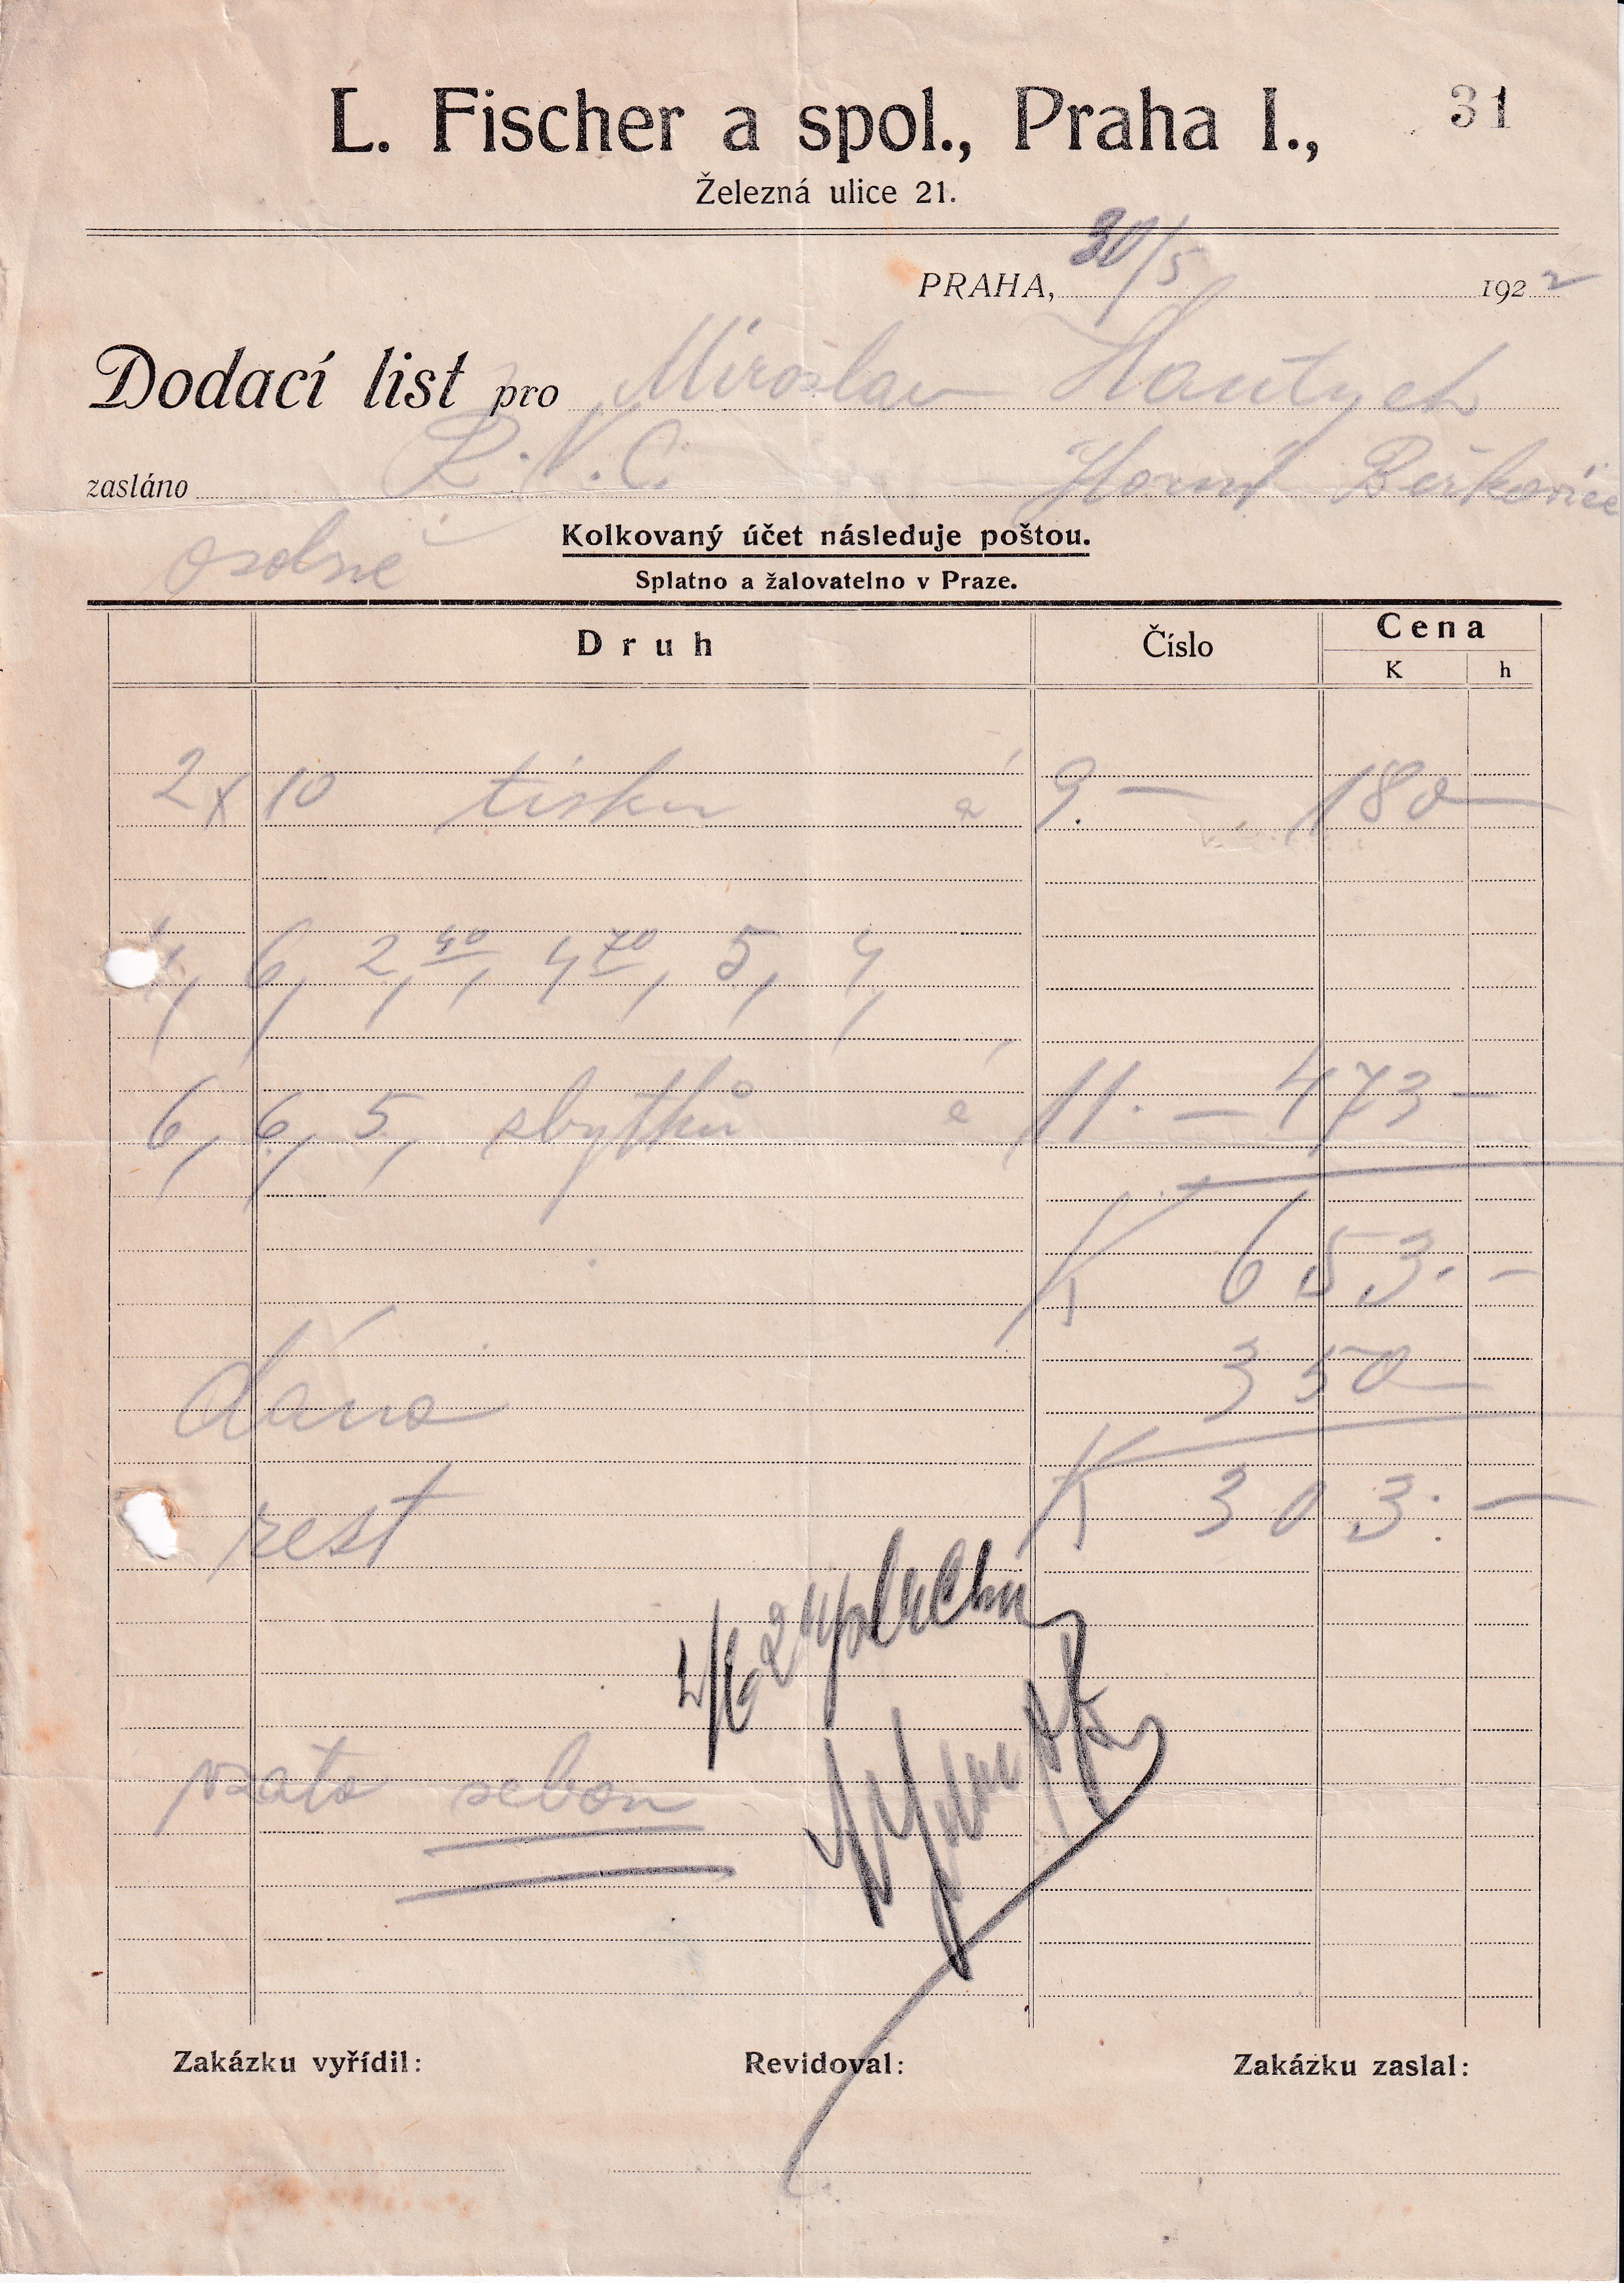 L. Fischer a spol., Praha I., 31
Železná ulice 21.
PRAHA, 30/5 1922
Dodací list pro Miroslav Hantych
R.V.C. Horní Beřkovice
zasláno
osobně
Kolkovaný účet následuje poštou.
Splatno a žalovatelno v Praze.
Druh Číslo Cena
K h
2x10 tisku á 9.— 180—
4, 6, 2,40, 4 70, 5, 4,
6, 6, 5, sbytků á 11.— 473—
K 653.—
dáno 350—
rest K 303.—
vzato sebou
Zakázku vyřídil: Revidoval: Zakázku zaslal: